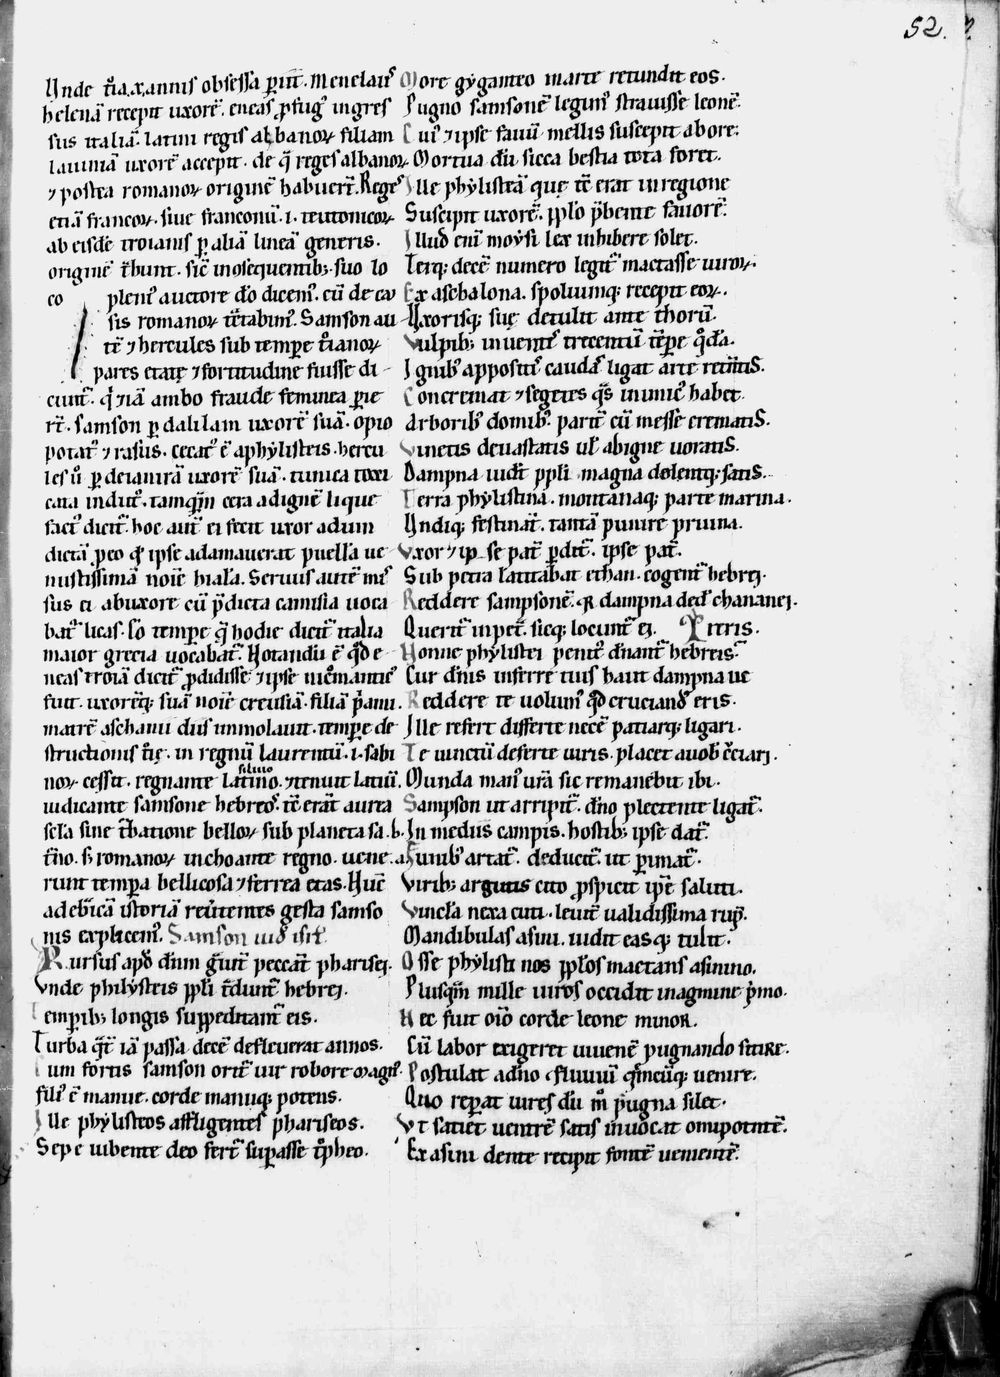 52.
Unde t͛ia.x.annis obsessa ꝑiit. Menelaus
helenā recepit uxorē. eneas ꝓfug᷒ ingres
sus italiā. latini regis albanoꝝ filiam
lauiniā uxorē accepit. de q̄ reges albanoꝝ
⁊ postea romanoꝝ originē habuer̄t. Reges
etiā francoꝝ. siue franconū .i. teutonicoꝝ
ab eisdē troianis ꝑ aliā lineā generis.
originē t̄hunt. sic̄ in sequentib; suo lo
co plenius auctore dō dicem᷒. cū de ca
sis romanoꝝ t̄ctabim᷒. Samson au
tē ⁊ hercules sub tempe t͛ianoꝝ
pares etate ⁊ fortitudine fuisse di
cunt᷒. q̄ ⁊ iā ambo fraude feminea ꝑie
rt̄. samson ꝑ dalilam uxorē suā. opio
potat᷒ ⁊ rasus. cecat᷒ ē aphylisteis. hercu
les ū ꝑ deianirā uxorē suā. tunica toxi
cata indut᷒. tamqm̄ cera ad ignē lique
fact᷒ dicit᷒. hoc aut̄ ei fecit uxor adiun
dictā. ꝑeo qd̄ ipse adamauerat puella ue
nustissimā noīe hiala. Seruus autē mis
sus ei ab uxore cū p̄dicta camisia uoca
bat᷒ licas. so tempe q̄ hodie dicit᷒ italia
maior grecia uocabat᷒. Notandū ē qd̄ e
neas troiā dicit᷒ ꝓdidisse ⁊ ipse nic͛mantic᷒
fuit. uxoreq; suā noīe creusiā. filiā p͛ami.
matrē aschanii diis immolauit. tempe de
structionis t͛ię. in regnū laurentiū .i. sabi
noꝝ cessit. regnante latino siluio. ⁊ tenuit latiū.
iudicante samsone hebreos. tc̄ erāt aurea
scla sine t͛batione belloꝝ sub planeta sa.b.
t͛no. s; romanoꝝ inchoante regno. uene.a
runt tempa bellicosa ⁊ ferrea etas. Huc̄
ad ebraicā istoriā reu͛tentes gesta samso
nis explicem᷒. Samson uid isrl.
Rursus apd̄ dn̄m g͛uit᷒ peccāt pharisei.
Vnde philysteis ppli t͛dunt᷒ hebrei.
Temporib; longis suppeditant᷒ eis.
Turba q̄t iā passa decē defleuerat annos.
Cum fortis samson orit᷒ uir robore magn᷒.
fili᷒ ē manue. corde manuq; potens.
Ille phylisteos affligentes phariseos.
Sepe iubente deo fert᷒ supasse t͛pheo.
More gyganteo marte retundit eos.
Pugno samsonē legim᷒ strauisse leonē.
Cui᷒ ⁊ ipse fauū mellis suscepit abore:
Mortua dū sicca bestia tota foret.
Ille phylisteā que tc̄ erat in regione
Suscipit uxorē. pplo p̄bente fauorē:
Illud eni moysi lex inhibere solet.
Terq; decē numero legit᷒ mactasse uiroꝝ.
Ex aschalona. spoliumq; recepit eoꝝ.
Uxorisq; suę detulit ante thorū.
Vulpib; inuentis trecentū tēpe qd̄ā.
Ignib᷒ appositis caudā ligat arte retiitis.
Concremat ⁊ segetes qs̄ inimic᷒ habet.
Arborib᷒ domib; parit̄ cū messe crematis.
Vinetis deuastatis ul̄ abigne uoratis.
Dampna uidt̄ ppli magna dolentq; satis.
Terra phylistina. montanaq; parte marina.
Undiq; festinat̄. tantā punire pruina.
Vxor ⁊ ip se pat᷒ ꝑdit᷒. ipse pat᷒.
Sub petra latitabat ethan. cogent᷒ hebrei.
Reddere sampsonē. ꝗ dampna ded᷒ chananei.
Querit᷒ inpet᷒. sicq; locunt᷒ ei. Tetris.
Nonne phylistei penit᷒ dn̄ant᷒ hebreis.
Cur dn̄is inferre tuis haut dampna ue
Reddere te uolum᷒ qd̄ cruciand᷒ eris.
Ille refert differte necē patiarq; ligari.
Te uinctū deferte uiris. placet auob c̄ciari.
Munda man᷒ ur̄a sic remanebit ibi.
Sampson ut arripit᷒. dn̄o plectente ligat᷒.
In medus campis. hostib; ipse dat᷒.
Funib᷒ artat᷒. deducit᷒. ut ꝑimat᷒.
Virib; argutis cito ꝓspicit ip̄e saluti.
Vincla nexa cuti. leuit̄ ualidissima rup̄.
Mandibulas asini. uidit easq; tulit.
Osse phylisti nos pplos mactans asinino.
Plusqm̄ mille uiros occidit in agmine p͛mo.
Nec fuit oīo corde leone minor.
Cū labor exigeret uiuenē pugnando sitire.
Postulat adn̄o fluuiū qm̄cūq; uenire.
Quo repat uires dū m̄ pugna silet.
Vt satiet uentrē satis inuocat omipotntē.
Ex asini dente recipit fontē uementē.